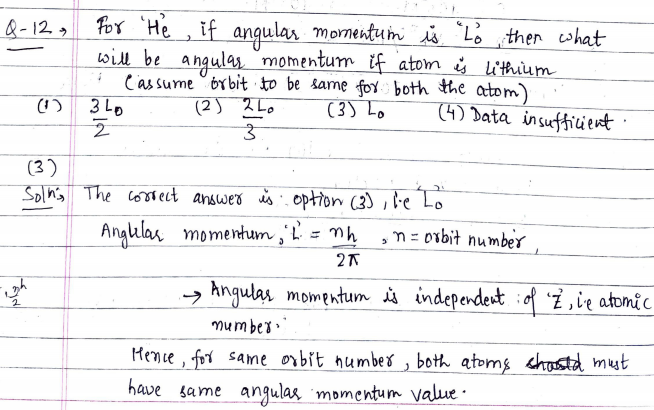 Q-12 → For 'He', if angular momentum is "L₀", then what
will be angular momentum if atom is lithium
(assume orbit to be same for both the atom)
(1) 3L₀/2 (2) 2L₀/3 (3) L₀ (4) Data insufficient.
(3)
Solⁿ:→ The correct answer is option (3), i.e "L₀"
Angular momentum, 'L' = nh/2π, n = orbit number,
→ Angular momentum is independent of 'Z', i.e atomic
number.
Hence, for same orbit number, both atoms must
have same angular momentum value.